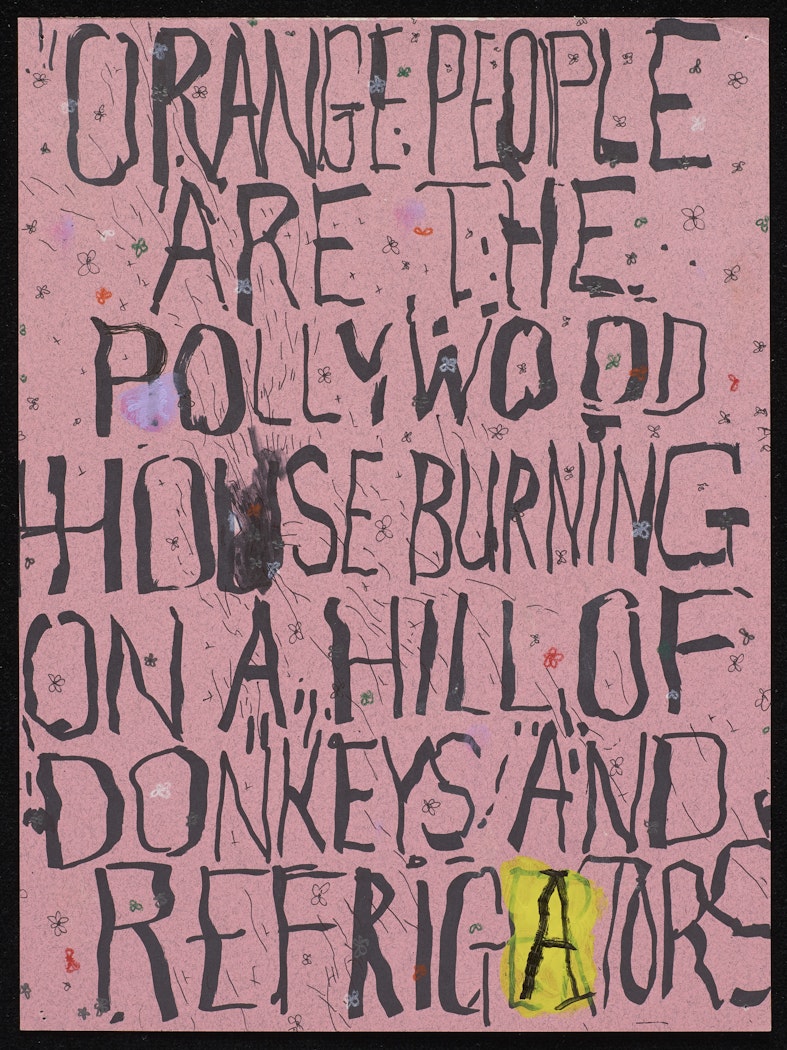 "ORANGE PEOPLE
ARE THE
POLLYWOOD
HOUSE BURNING
ON A HILL OF
DONKEYS AND
REFRIGATORS